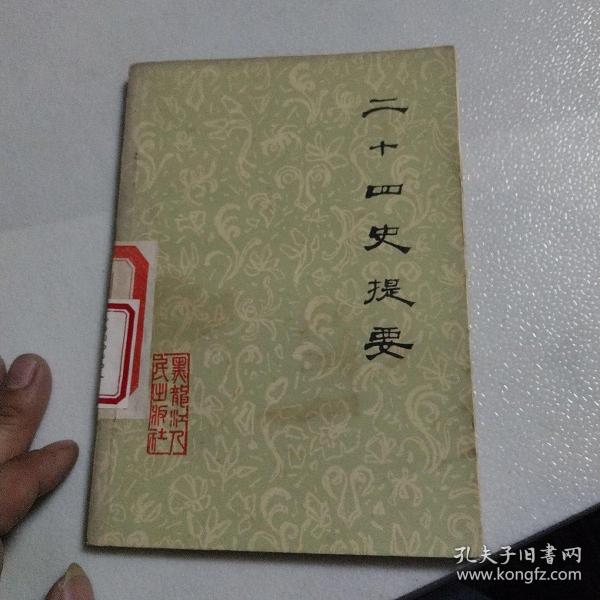 二十四史提要
黑龍江人
民出版社
孔夫子旧書网
www.kongfz.com